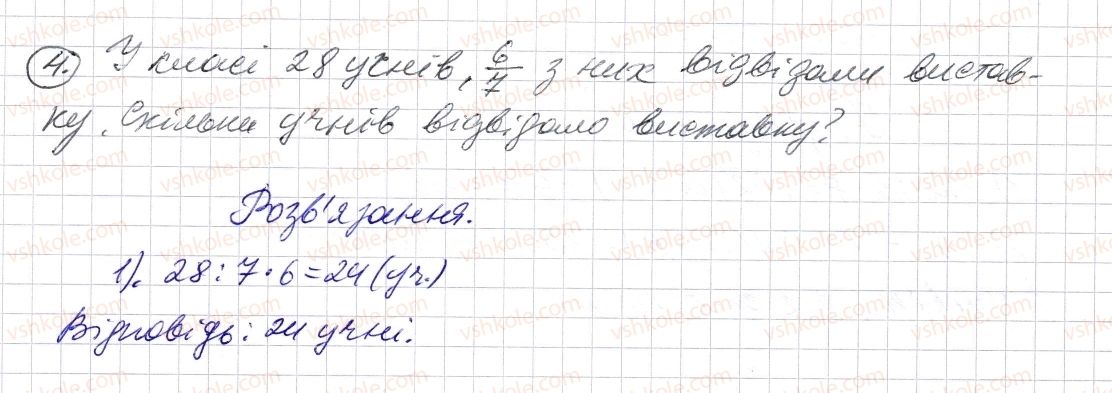 4. У класі 28 учнів, 6/7 з них відвідали вистав-
ку. Скільки учнів відвідало виставку?
Розв'язання.
1). 28:7·6=24(уч.)
Відповідь: 24 учні.